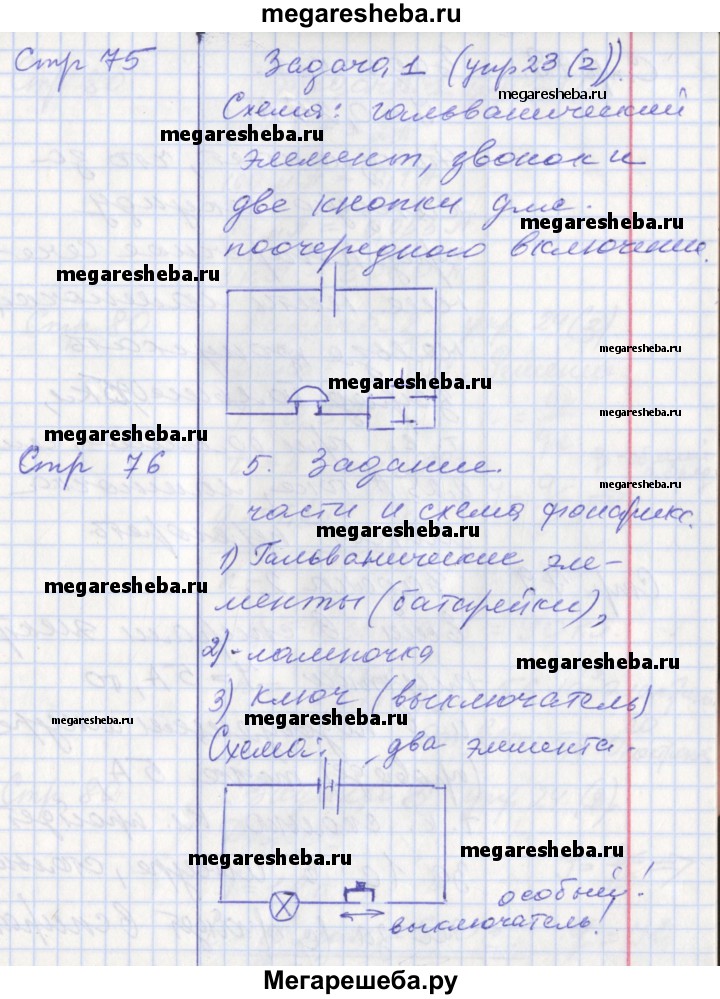 megaresheba.ru
Стр 75
Задача 1 (упр 23 (2)).
megaresheba.ru
Схема: гальванический
megaresheba.ru
элемент, звонок и
две кнопки для
megaresheba.ru
поочередного включения.
megaresheba.ru
megaresheba.ru
megaresheba.ru
megaresheba.ru
megaresheba.ru
Стр 76
5. Задание.
megaresheba.ru
части и схема фонарика.
megaresheba.ru
1) Гальванические эле-
megaresheba.ru
менты (батарейки),
2) - лампочка
megaresheba.ru
3) ключ (выключатель)
megaresheba.ru
megaresheba.ru
Схема: два элемента -
megaresheba.ru
megaresheba.ru
особый!
выключатель!
Мегарешеба.ру